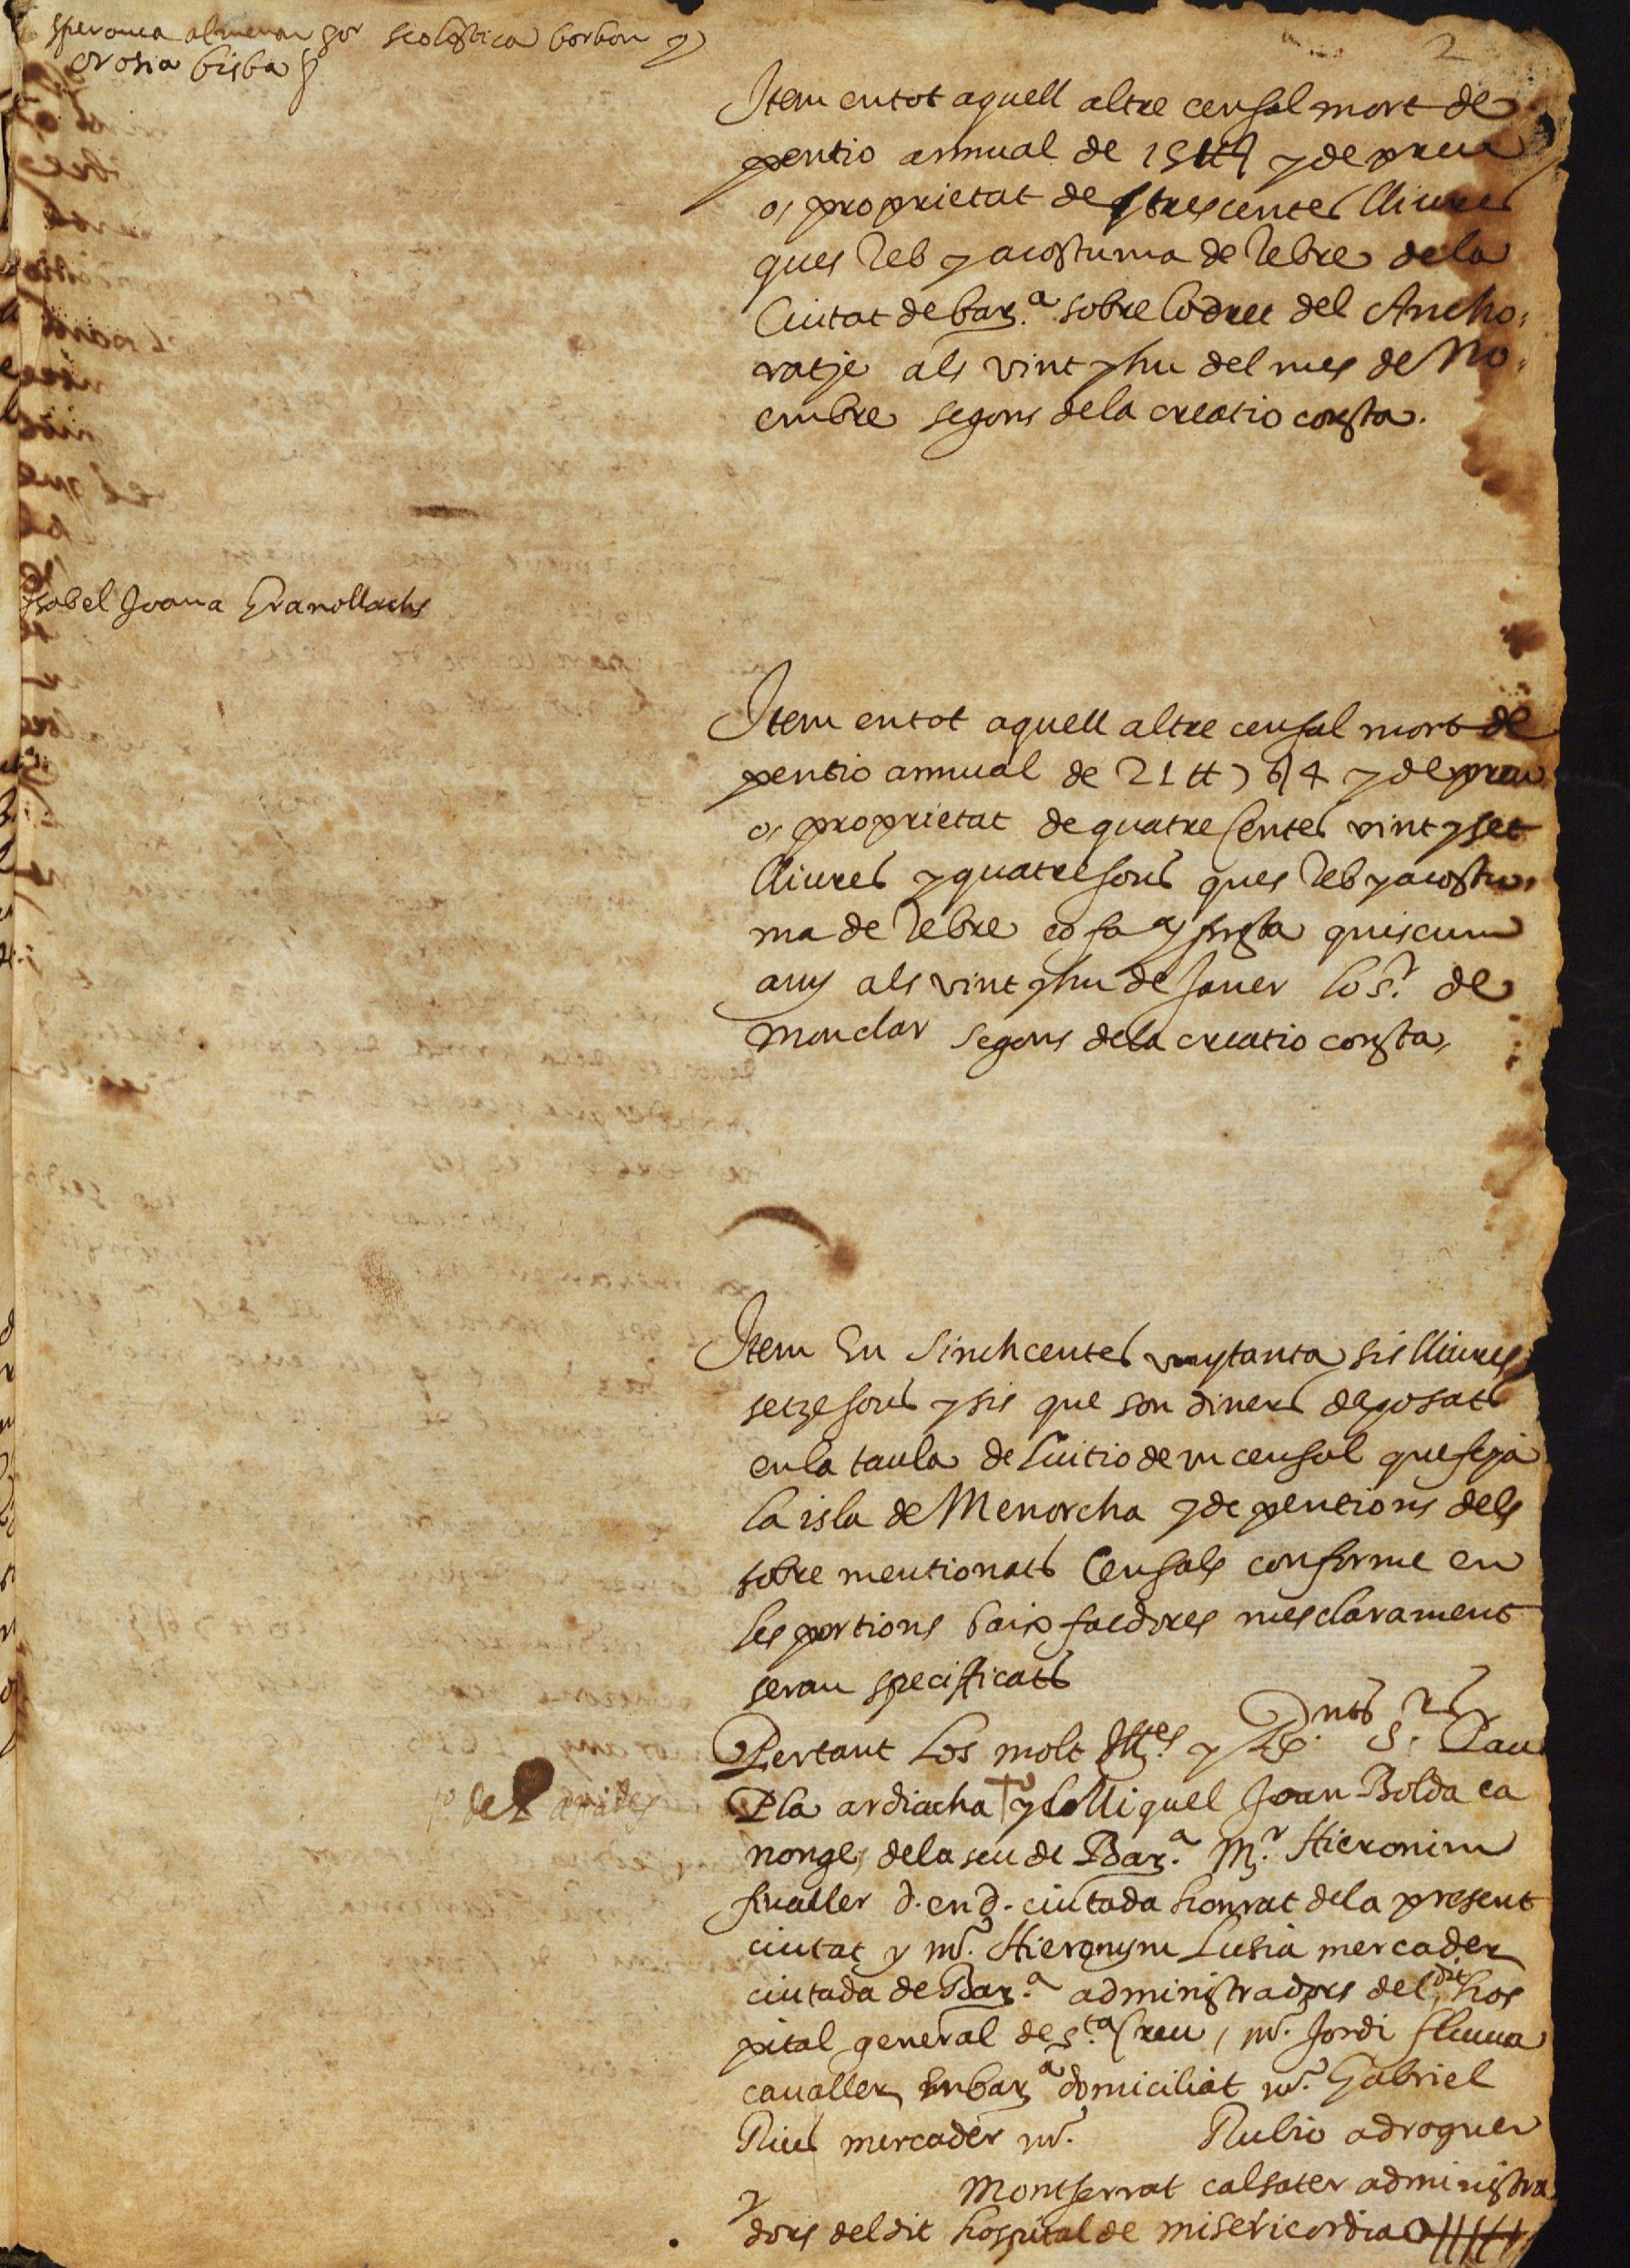 sperança almenar por scolastica borbon y
orosia bisba
2
Item en tot aquell altre censal mort de
pentio annual de 15 ₶ y de preu
o, proprietat de trescentes lliures
ques reb y acostuma de rebre de la
Ciutat de Bar.ª sobre lo dret del Ancho,
ratje als vint y hu del mes de No,
embre segons de la creatio consta.
Isabel Joana Granollachs
Item en tot aquell altre censal mort de
pentio annual de 21 ₶ 7 ẞ 4 y de preu
o, proprietat de quatre Centes vint y set
lliures y quatre sous ques reb y acostu,
ma de rebre quiscun
any als vint y hu de Janer lo s.r de
Monclar segons de la creatio consta,
Item En Sinch centes vuytanta sis lliures
setze sous y sis que son diners deposats
en la taula de luitio de un censal que feya
la isla de Menorcha y de pentions dels
sobre mentionats Censals conforme en
les portions baix faedores mes clarament
seran specificats
Pertant Los molt Ill.es y R.nts S.rs Pau
Pla ardiacha y Miquel Joan Bolda ca
p.º de
nonge, de la seu de Bar.ª M.r Hieronim
fivaller d. en d. ciutada honrat de la present
ciutat y m.r Hieronym Lusia mercader
ciutada de Bar.ª administradors del dit hos
pital general de S.ta Creu, m.r Jordi fluvia
cavaller, en bar.ª domiciliat m.r Gabriel
Rius mercader m.r Rubio adroguer
y Montserrat calsater administra
dors del dit hospital de misericordia